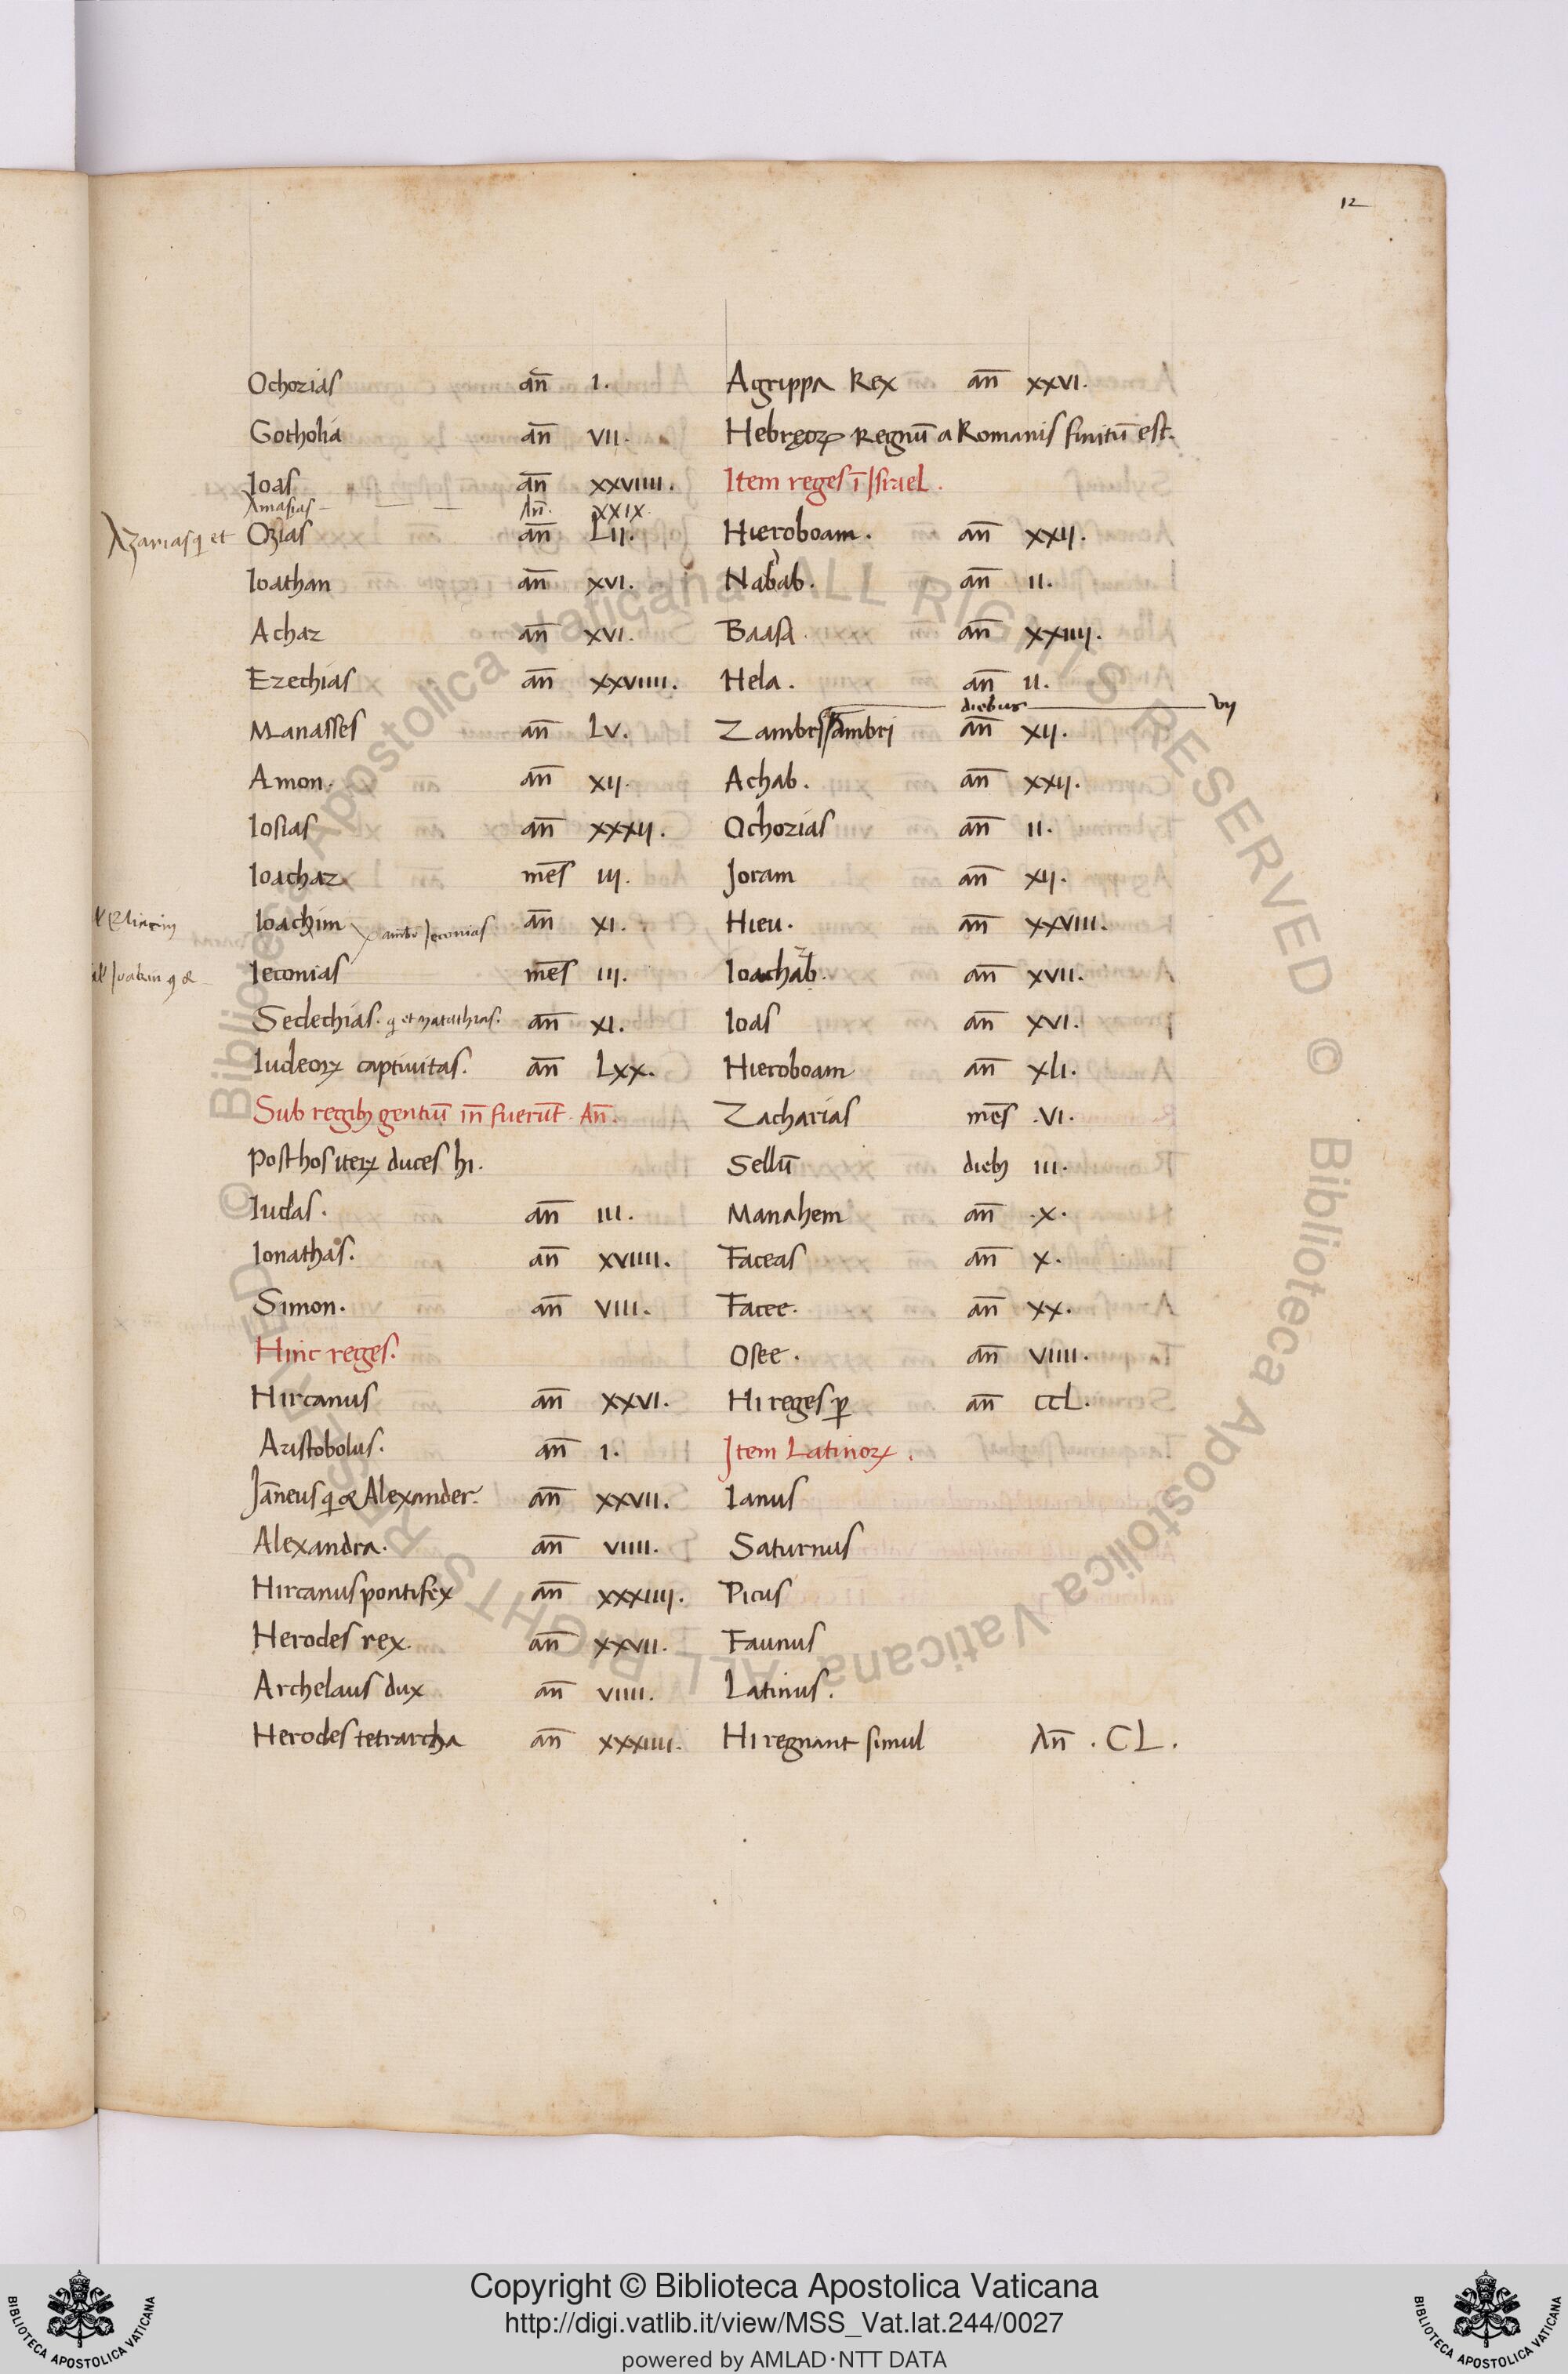 12
Ochozias an̄ I.
Gotholia an̄ VII.
Ioas an̄ XXVIIII.
Amasias An̄. XXIX.
Azarias q et Ozias an̄ LII.
Ioathan an̄ XVI.
Achaz an̄ XVI.
Ezechias an̄ XXVIIII.
Manasses an̄ LV.
Amon. an̄ XII.
Iosias an̄ XXXII.
Ioachaz mēs III.
Ioachim an̄ XI.
Ieconias mēs III.
Sedechias. q et Matathias. an̄ XI.
Iudeoꝝ captivitas. an̄ LXX.
Sub regibꝫ gentiū in̄ fuerūt. An̄.
Post hos iteꝝ duces hi.
Iudas. an̄ III.
Ionathas. an̄ XVIIII.
Simon. an̄ VIII.
Hinc reges.
Hircanus an̄ XXVI.
Aristobolus. an̄ I.
Jāneus q & Alexander. an̄ XXVII.
Alexandra. an̄ VIIII.
Hircanus pontifex an̄ XXXIIII.
Herodes rex. an̄ XXVII.
Archelaus dux an̄ VIIII.
Herodes tetrarcha an̄ XXXIIII.
Agrippa Rex an̄ XXVI.
Hebręoꝝ Regnū a Romanis finitū est.
Item reges ī Israel.
Hieroboam. an̄ XXII.
Nabab. an̄ II.
Baasa. an̄ XXIIII.
Hela. an̄ II.
diebus VII
Zambri ambri an̄ XII.
Achab. an̄ XXII.
Ochozias an̄ II.
Joram an̄ XII.
Hieu. an̄ XXVIII.
Ioachab. an̄ XVII.
Ioas an̄ XVI.
Hieroboam an̄ XLI.
Zacharias mēs .VI.
Sellū diebꝫ III.
Manahem an̄ .X.
Faceas an̄ X.
Facee. an̄ XX.
Osee. an̄ VIIII.
Hi reges ꝑ an̄ CCL.
Item Latinoꝝ.
Ianus
Saturnus
Picus
Faunus
Latinus.
Hi regnant simul An̄. CL.
© Biblioteca Apostolica Vaticana ALL RIGHTS RESERVED © Biblioteca Apostolica Vaticana ALL RIGHTS RESERVED
Copyright © Biblioteca Apostolica Vaticana
http://digi.vatlib.it/view/MSS_Vat.lat.244/0027
powered by AMLAD·NTT DATA
BIBLIOTECA APOSTOLICA VATICANA
BIBLIOTECA APOSTOLICA VATICANA